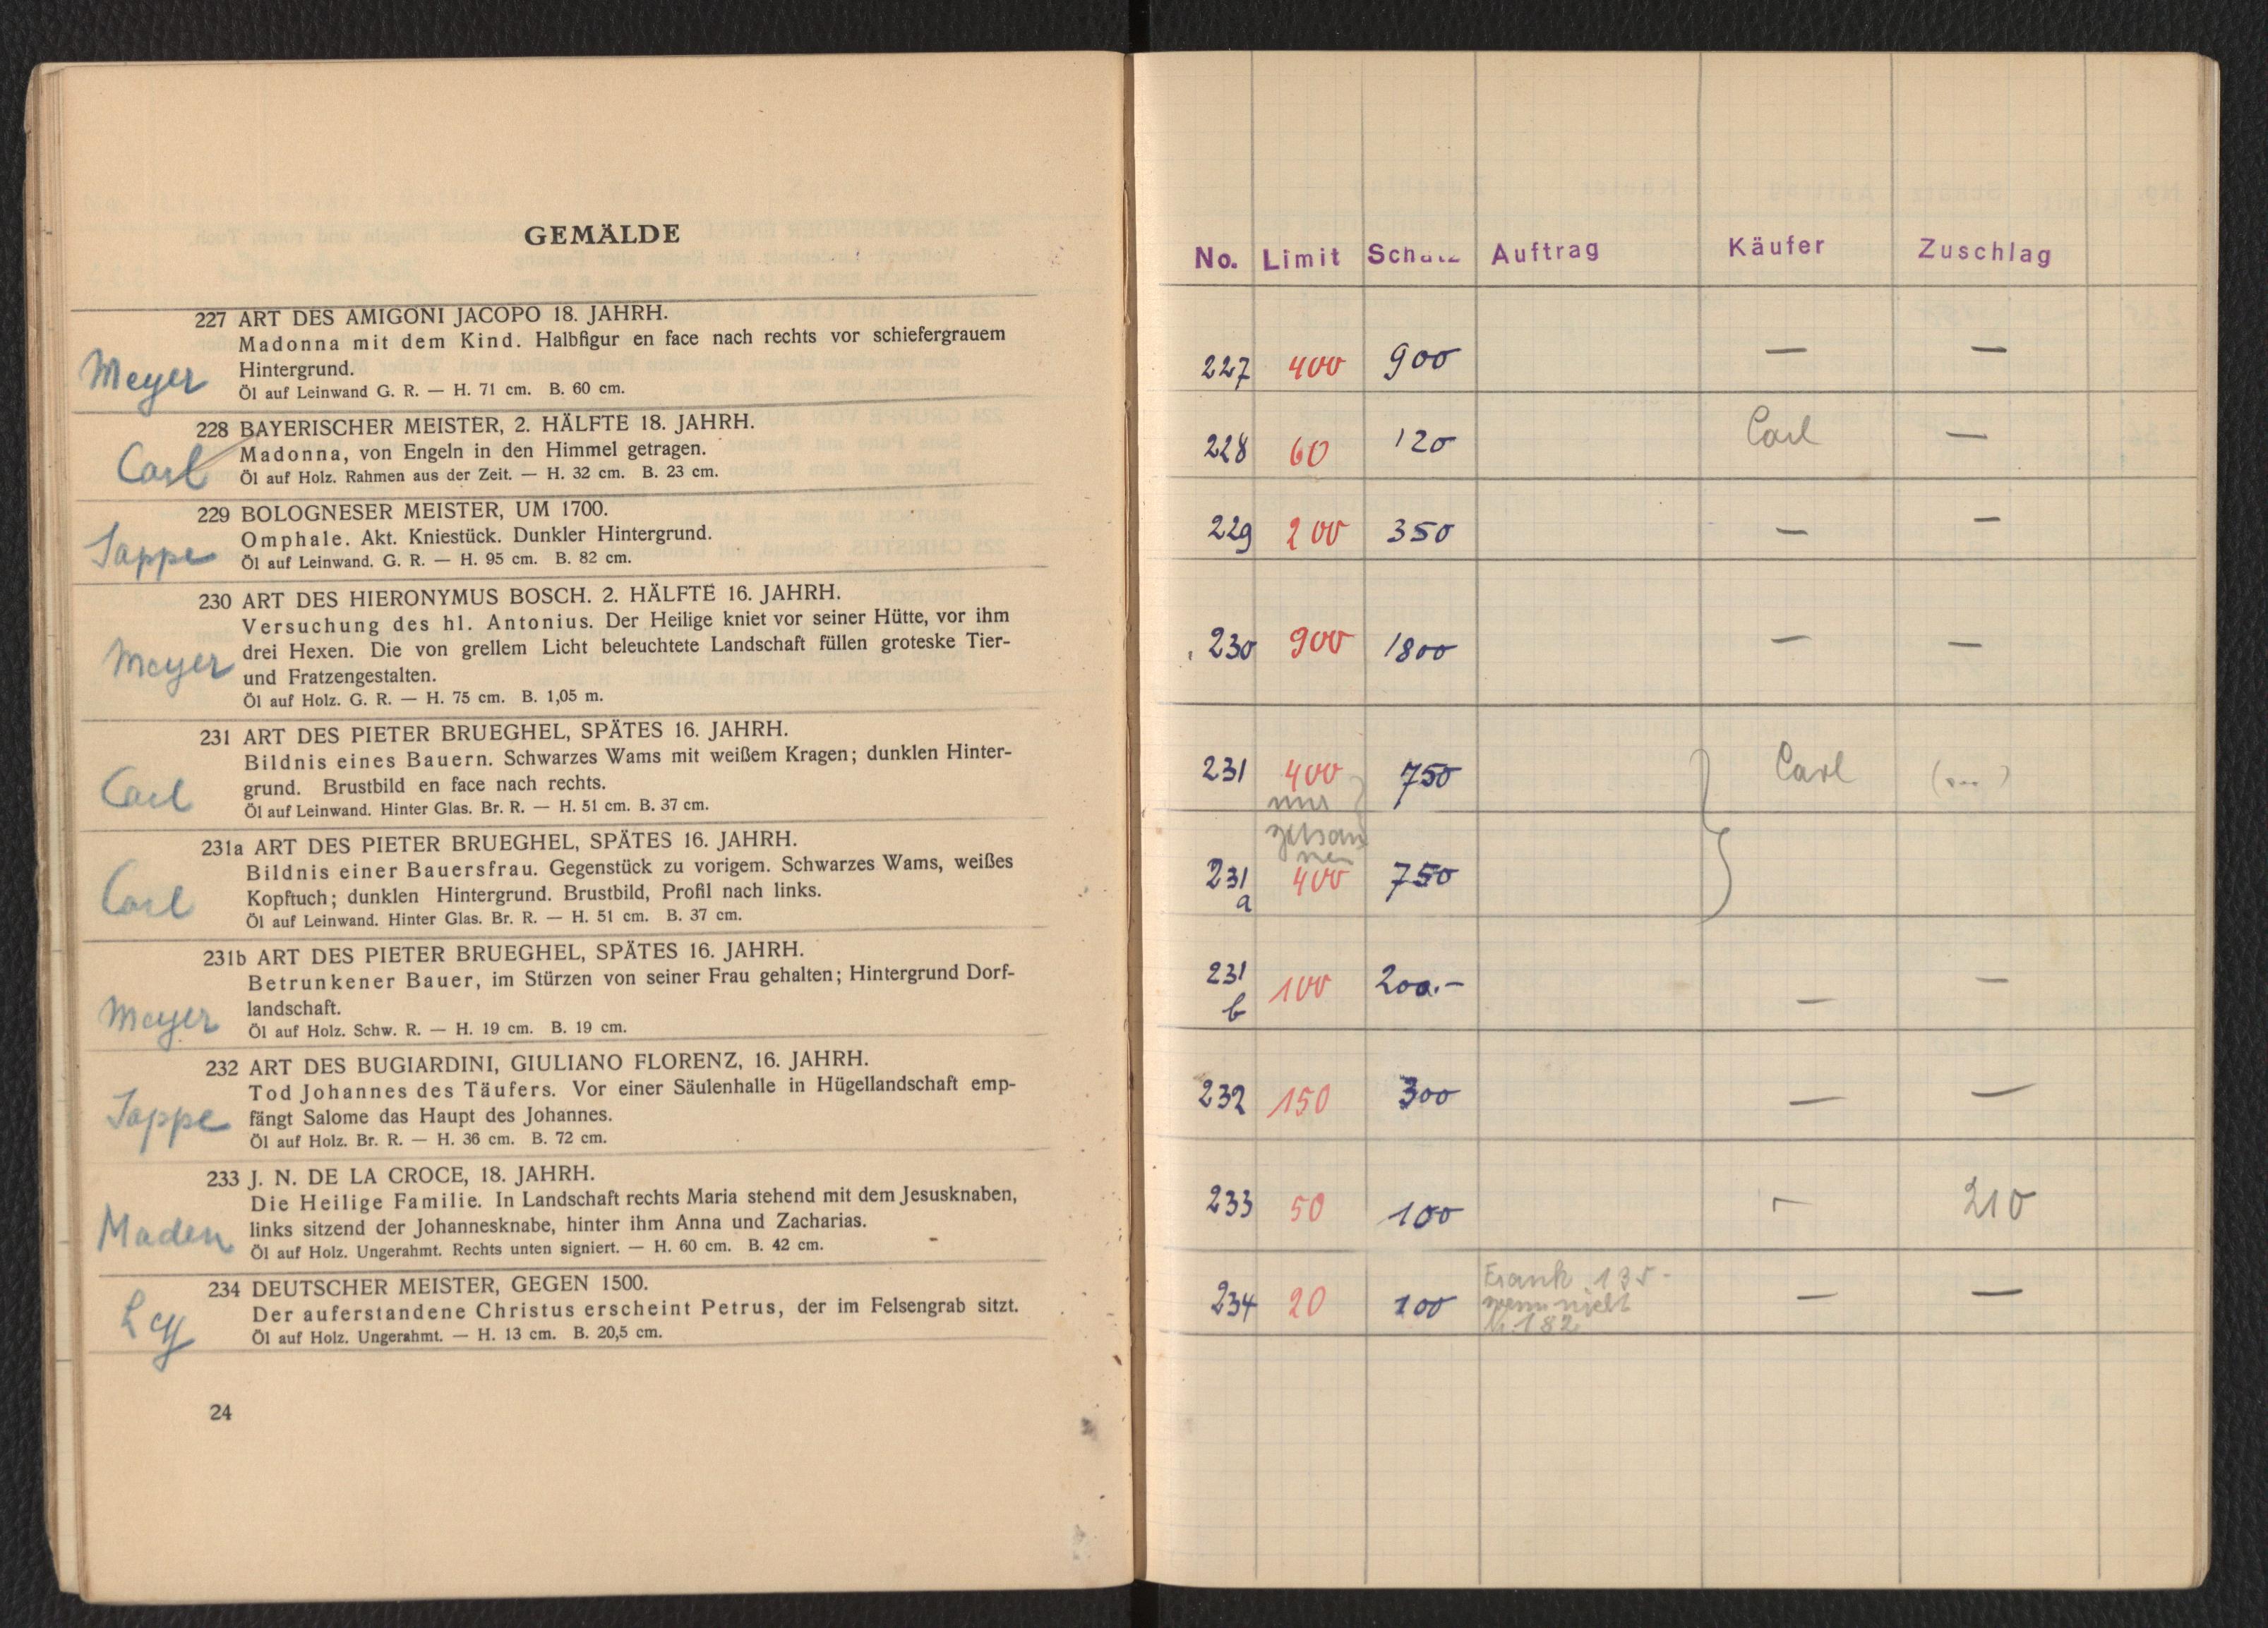 GEMÄLDE
227 ART DES AMIGONI JACOPO 18. JAHRH.
Madonna mit dem Kind. Halbfigur en face nach rechts vor schiefergrauem
Meyer Hintergrund.
Öl auf Leinwand G. R. — H. 71 cm. B. 60 cm.
228 BAYERISCHER MEISTER, 2. HÄLFTE 18. JAHRH.
Carl Madonna, von Engeln in den Himmel getragen.
Öl auf Holz. Rahmen aus der Zeit. — H. 32 cm. B. 23 cm.
229 BOLOGNESER MEISTER, UM 1700.
Sappe Omphale. Akt. Kniestück. Dunkler Hintergrund.
Öl auf Leinwand. G. R. — H. 95 cm. B. 82 cm.
230 ART DES HIERONYMUS BOSCH. 2. HÄLFTE 16. JAHRH.
Versuchung des hl. Antonius. Der Heilige kniet vor seiner Hütte, vor ihm
Meyer drei Hexen. Die von grellem Licht beleuchtete Landschaft füllen groteske Tier-
und Fratzengestalten.
Öl auf Holz. G. R. — H. 75 cm. B. 1,05 m.
231 ART DES PIETER BRUEGHEL, SPÄTES 16. JAHRH.
Bildnis eines Bauern. Schwarzes Wams mit weißem Kragen; dunklen Hinter-
Carl grund. Brustbild en face nach rechts.
Öl auf Leinwand. Hinter Glas. Br. R. — H. 51 cm. B. 37 cm.
231a ART DES PIETER BRUEGHEL, SPÄTES 16. JAHRH.
Bildnis einer Bauersfrau. Gegenstück zu vorigem. Schwarzes Wams, weißes
Carl Kopftuch; dunklen Hintergrund. Brustbild, Profil nach links.
Öl auf Leinwand. Hinter Glas. Br. R. — H. 51 cm. B. 37 cm.
231b ART DES PIETER BRUEGHEL, SPÄTES 16. JAHRH.
Betrunkener Bauer, im Stürzen von seiner Frau gehalten; Hintergrund Dorf-
Meyer landschaft.
Öl auf Holz. Schw. R. — H. 19 cm. B. 19 cm.
232 ART DES BUGIARDINI, GIULIANO FLORENZ, 16. JAHRH.
Tod Johannes des Täufers. Vor einer Säulenhalle in Hügellandschaft emp-
Sappe fängt Salome das Haupt des Johannes.
Öl auf Holz. Br. R. — H. 36 cm. B. 72 cm.
233 J. N. DE LA CROCE, 18. JAHRH.
Die Heilige Familie. In Landschaft rechts Maria stehend mit dem Jesusknaben,
Maden links sitzend der Johannesknabe, hinter ihm Anna und Zacharias.
Öl auf Holz. Ungerahmt. Rechts unten signiert. — H. 60 cm. B. 42 cm.
234 DEUTSCHER MEISTER, GEGEN 1500.
Der auferstandene Christus erscheint Petrus, der im Felsengrab sitzt.
Öl auf Holz. Ungerahmt. — H. 13 cm. B. 20,5 cm.
24
No. Limit Schätz Auftrag Käufer Zuschlag
227 400 900 — —
228 60 120 Carl —
229 200 350 — —
230 900 1800 — —
231 400 750 Carl
nur
zusam
men
231 a 400 750
231 b 100 200.- — —
232 150 300 — —
233 50 100 — 210
234 20 100 Frank 135 - — —
wenn nicht
N. 182